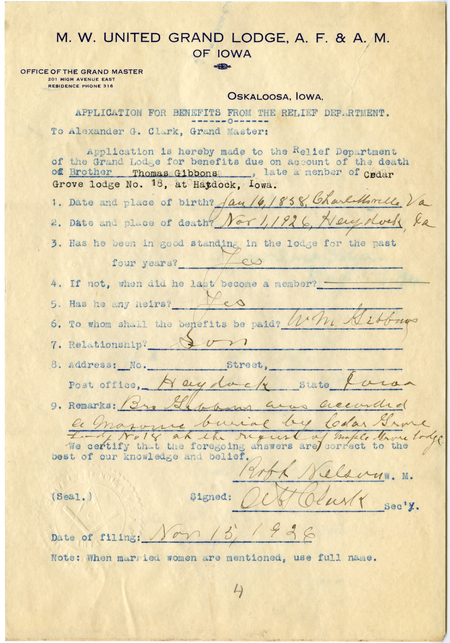 M. W. UNITED GRAND LODGE, A. F. & A. M.
OF IOWA
OFFICE OF THE GRAND MASTER
201 HIGH AVENUE EAST
RESIDENCE PHONE 316
OSKALOOSA, IOWA.
APPLICATION FOR BENEFITS FROM THE RELIEF DEPARTMENT.
To Alexander G. Clark, Grand Master:
Application is hereby made to the Relief Department
of the Grand Lodge for benefits due on account of the death
of Brother Thomas Gibbons, late a member of Cedar
Grove lodge No. 18, at Haydock, Iowa.
1. Date and place of birth? Jan 16, 1858, Charlottesville, Va
2. Date and place of death? Nov 1, 1926, Haydock, Ia
3. Has he been in good standing in the lodge for the past
four years? Yes
4. If not, when did he last become a member?
5. Has he any heirs? Yes
6. To whom shall the benefits be paid? Wm Gibbons
7. Relationship? Son
8. Address: No. Street,
Post office, Haydock State Iowa
9. Remarks: Bro Gibbons was accorded
a Masonic burial by Cedar Grove
Lodge No 18 at the request of Maple Grove Lodge
We certify that the foregoing answers are correct to the
best of our knowledge and belief.
Robt Nelson W. M.
(Seal.) Signed: Clark Sec'y.
Date of filing: Nov 15, 1926
Note: When married women are mentioned, use full name.
4